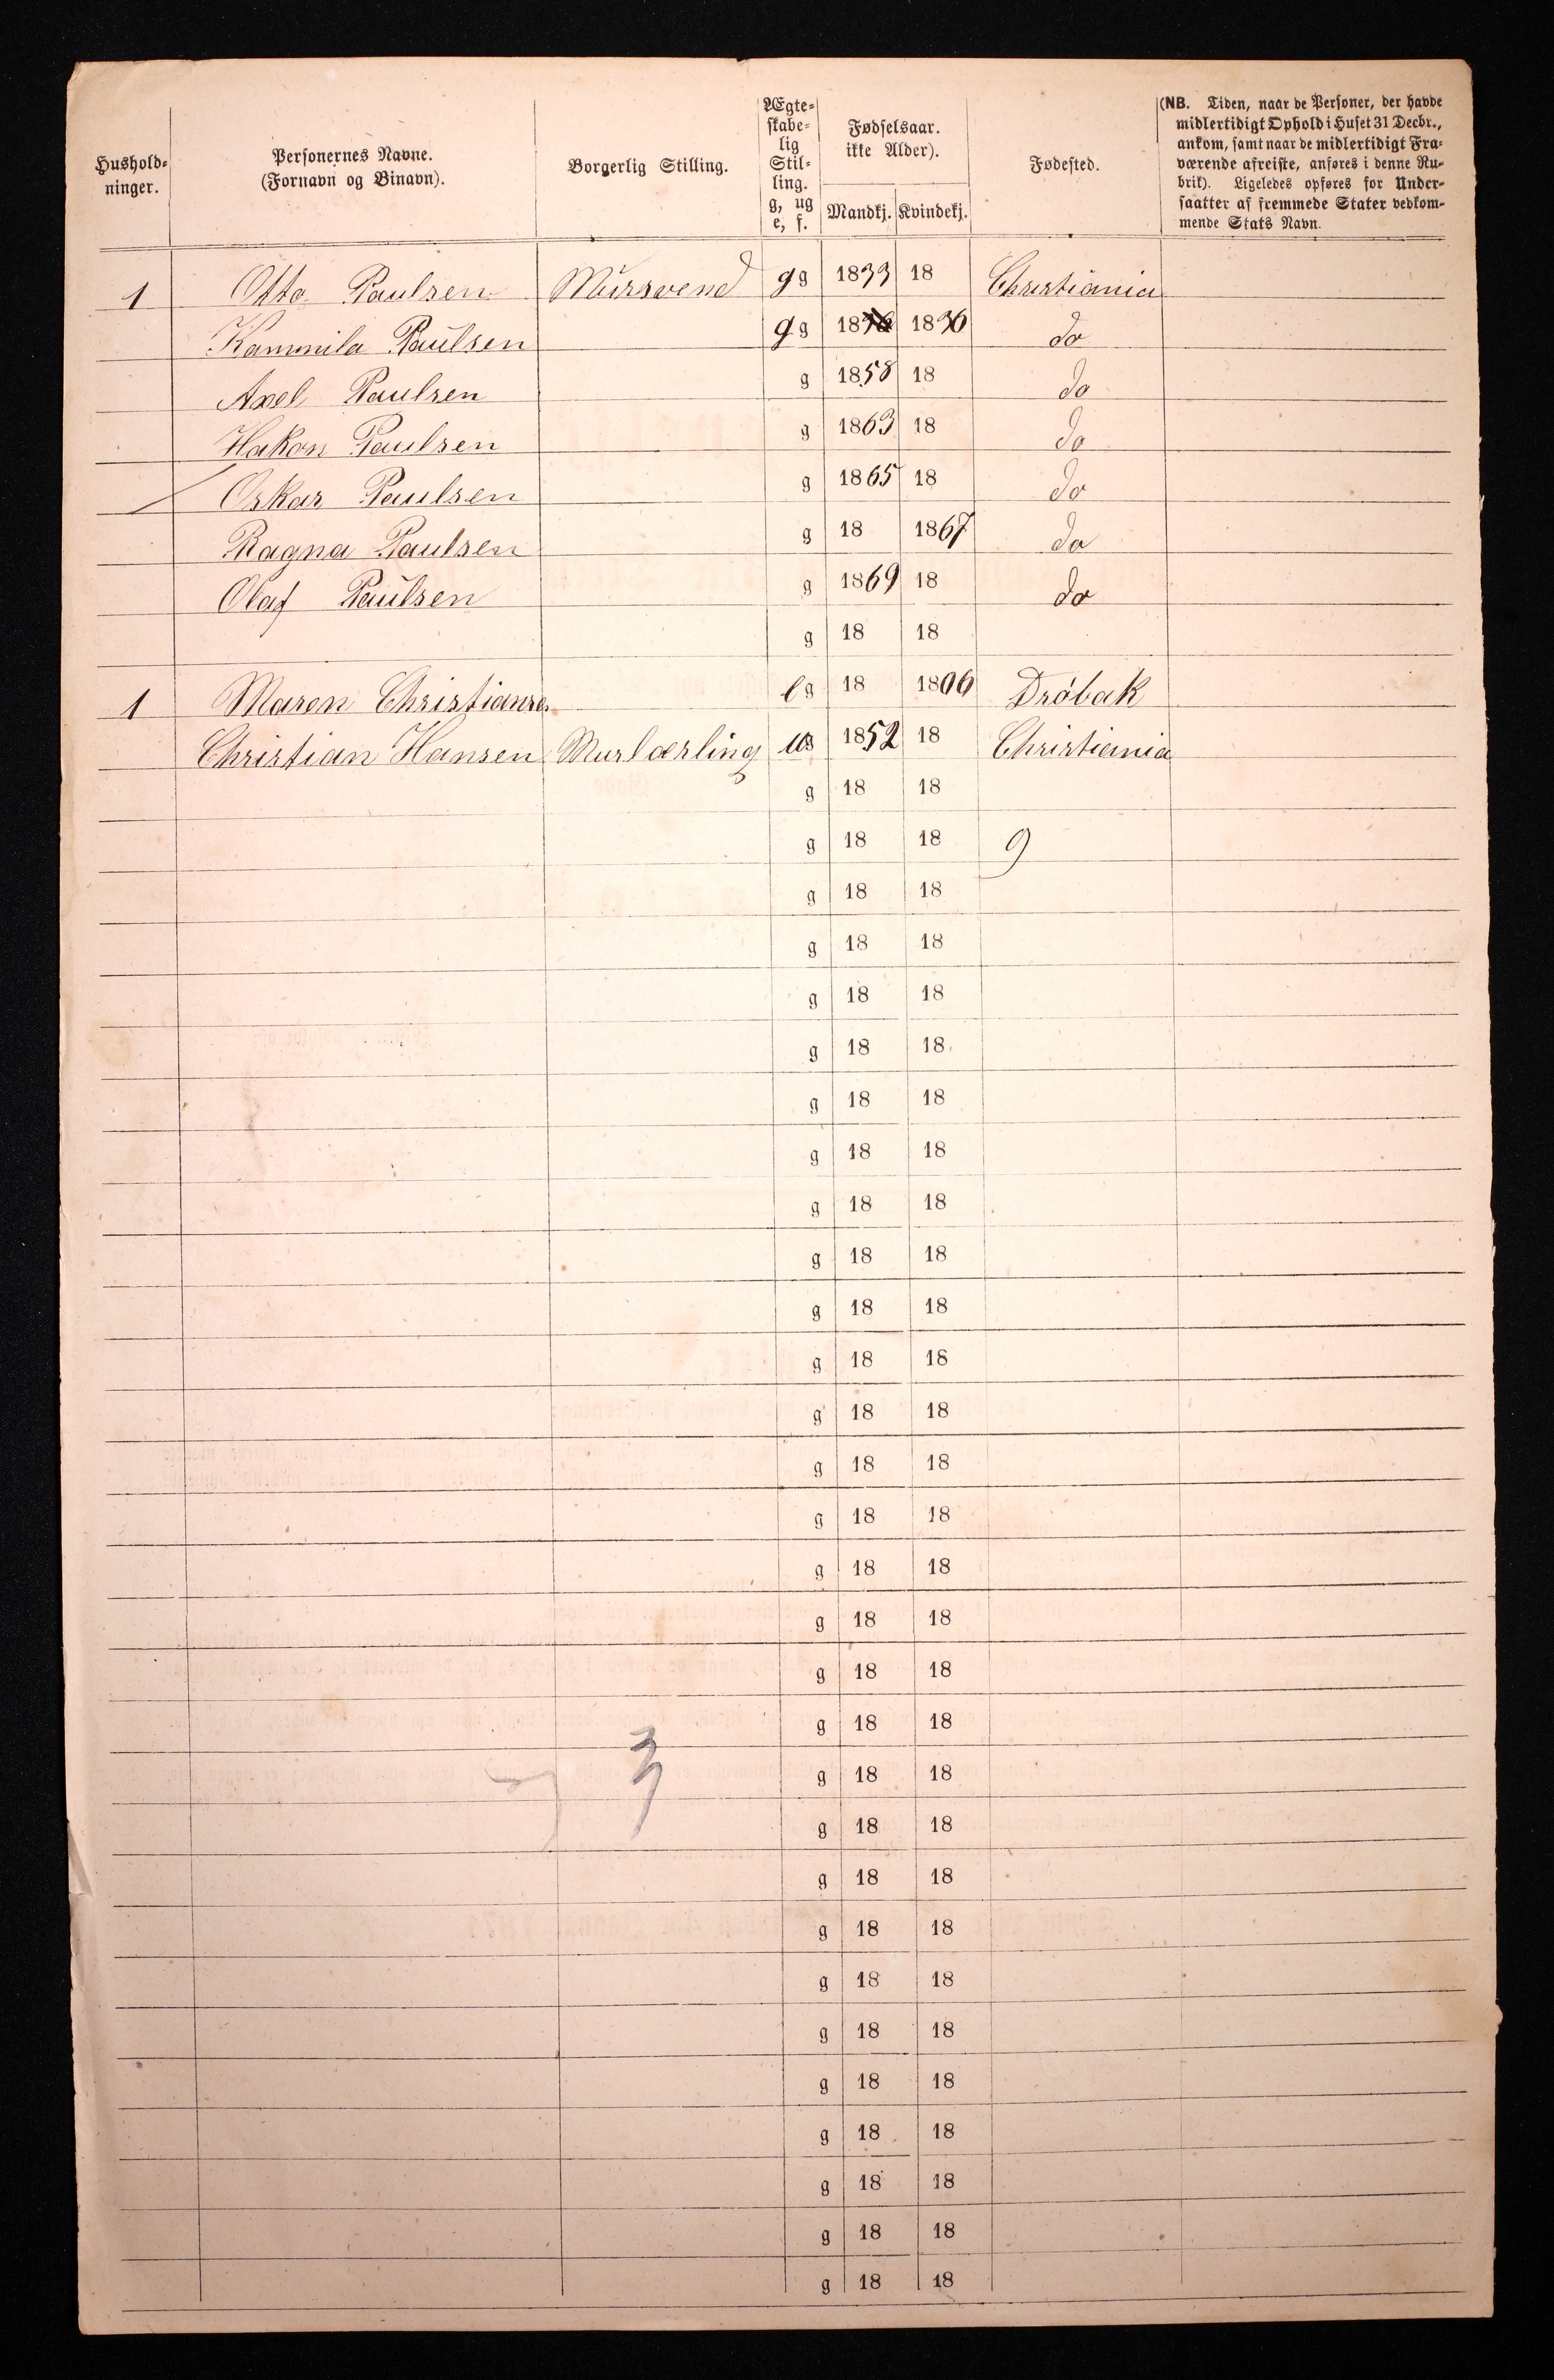 Hushold-
ninger.
Personernes Navne.
(Fornavn og Binavn).
Borgerlig Stilling.
Ægte-
skabe-
lig
Stil-
ling.
g, ug
e, f.
Fødselsaar.
ikke Alder).
Mandkj. Kvindekj.
Fødested.
(NB. Tiden, naar de Personer, der havde
midlertidigt Ophold i Huset 31 Decbr.,
ankom, samt naar de midlertidigt Fra-
værende afreiste, anføres i denne Ru-
brik). Ligeledes opføres for Under-
saatter af fremmede Stater vedkom-
mende Stats Navn.
1 Otto Paulsen Muursvend g g 1833 18 Christiania
Kammila Paulsen g g 18 1836 do
Axel Paulsen g 1858 18 do
Hakon Paulsen g 1863 18 do
Oskar Paulsen g 1865 18 do
Ragna Paulsen g 18 1867 do
Olaf Paulsen g 1869 18 do
g 18 18
1 Maren Christiansen e g 18 1806 Dröbak
Christian Hansen Murlærling ug 1852 18 Christiania
g 18 18
g 18 18 9
g 18 18
g 18 18
g 18 18
g 18 18
g 18 18
g 18 18
g 18 18
g 18 18
g 18 18
g 18 18
g 18 18
g 18 18
g 18 18
g 18 18
g 18 18
g 18 18
g 18 18
3 g 18 18
g 18 18
g 18 18
g 18 18
g 18 18
g 18 18
g 18 18
g 18 18
g 18 18
g 18 18
g 18 18